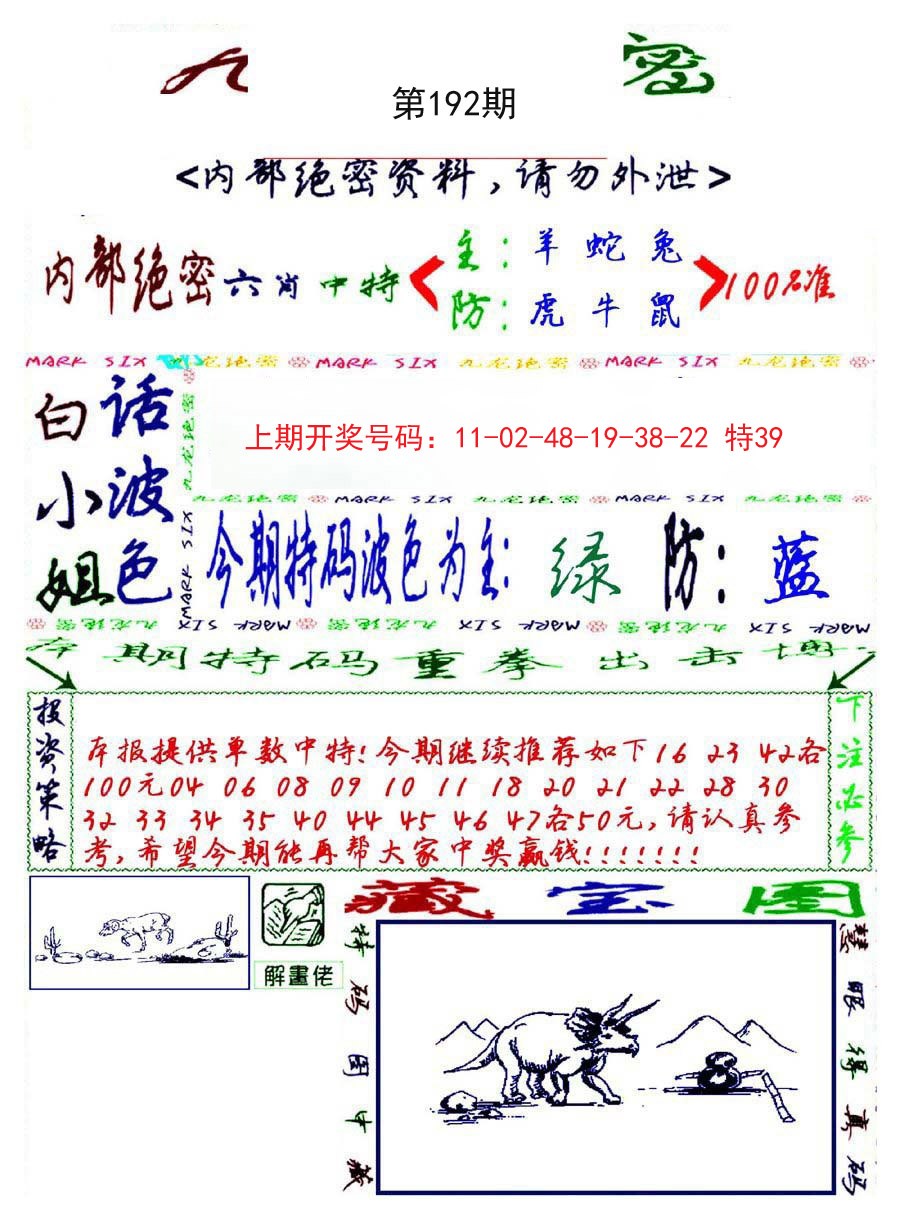 九 密
第192期
<内部绝密资料,请勿外泄>
内部绝密六肖中特
主:羊 蛇 兔
防:虎 牛 鼠
100%准
MARK SIX 九龙绝密 MARK SIX 九龙绝密 MARK SIX 九龙绝密
白话
小波
姐色
九龙绝密
MARK SIX
上期开奖号码：11-02-48-19-38-22 特39
九龙绝密 MARK SIX 九龙绝密 MARK SIX 九龙绝密
今期特码波色为主:绿 防:蓝
九龙绝密 MARK SIX 九龙绝密 MARK SIX 九龙绝密 MARK SIX
本期特码重拳出击博
投资策略
本报提供单数中特!今期继续推荐如下16 23 42各
100元04 06 08 09 10 11 18 20 21 22 28 30
32 33 34 35 40 44 45 46 47各50元,请认真参
考,希望今期能再帮大家中奖赢钱!!!!!!!
下注必参
解畫佬
藏宝图
特码图中藏
慧眼得真码